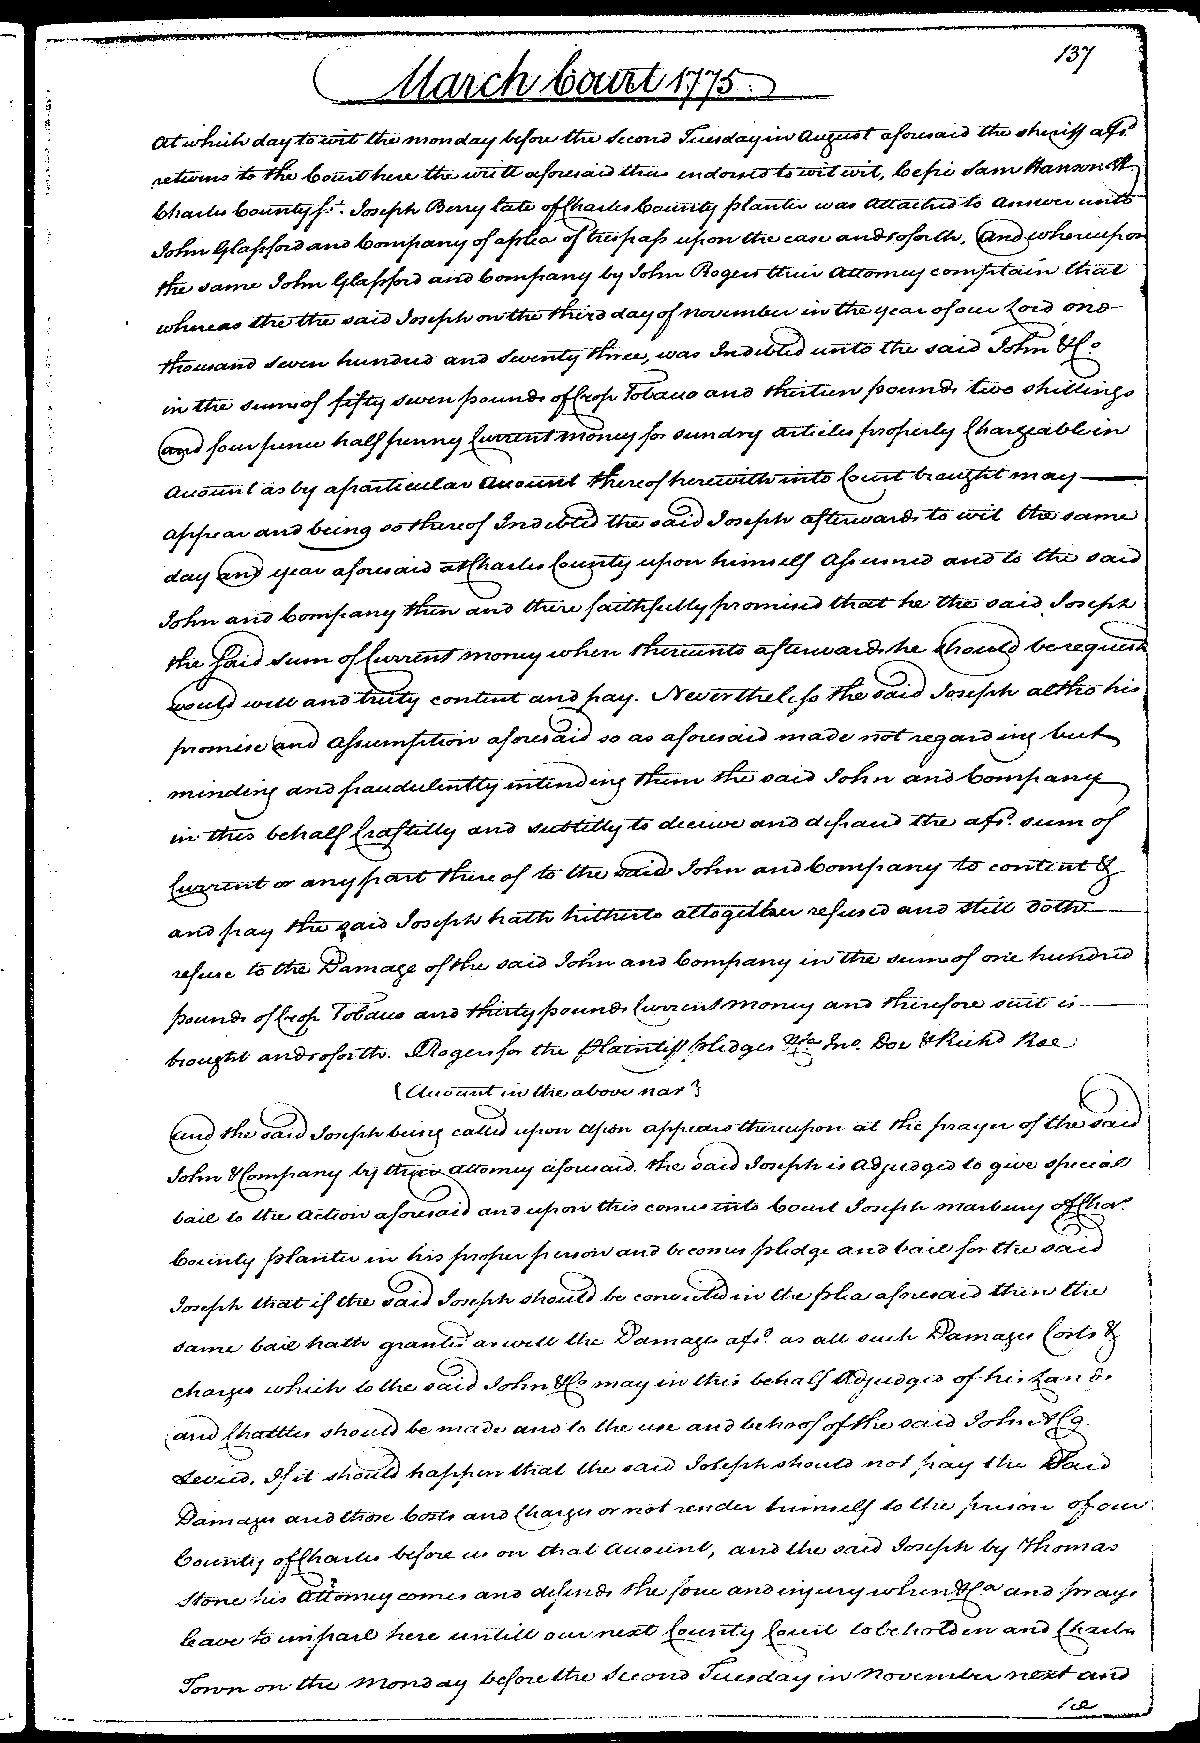 137
March Court 1775
At which day to wit the monday before the Second Tuesday in August aforesaid the sheriff afsd
returns to the Court here the writt aforesaid thus endorsed to wit wit, Cepi Sam Hanson Shff
Charles County sst. Joseph Berry late of Charles County planter was Attached to answer unto
John Glassford and Company of a plea of trespass upon the case and so forth, and whereupon
the same John Glassford and Company by John Rogers their Attorney complain that
whereas the the said Joseph on the third day of november in the year of our Lord one
thousand seven hundred and seventy three, was Indebted unto the said John & Co
in the sum of fifty seven pounds of Crop Tobacco and thirteen pounds two shillings
and four pence half penny Current money for sundry articles properly Chargeable in
Account as by a particular Account thereof herewith into Court brought may
appear and being so thereof Indebted the said Joseph afterwards to wit the same
day and year aforesaid at Charles County upon himself Assumed and to the said
John and Company then and there faithfully promised that he the said Joseph
the said sum of Current money when thereunto afterwards he should be request
would well and truly content and pay. Nevertheless the said Joseph altho his
promise and Assumption aforesaid so as aforesaid made not regarding but
minding and fraudulently intending them the said John and Company
in this behalf Craftilly and subtilly to deceive and defraud the afsd. sum of
Current or any part thereof to the said John and Company to content &
and pay the said Joseph hath hitherto altogether refused and still doth
refuse to the Damage of the said John and Company in the sum of one hundred
pounds of Crop Tobacco and thirty pounds Current money and therefore suit is
brought and so forth. Rogers for the Plaintiff pledges &ca Jno. Doe & Richd Roe
{Account in the above nar}
and the said Joseph being called upon upon appears thereupon at the prayer of the said
John & Company by their Attorney aforesaid. the said Joseph is adjudged to give special
bail to the action aforesaid and upon this comes into Court Joseph marbury of Chas
County planter in his proper person and becomes pledge and bail for the said
Joseph that if the said Joseph should be convicted in the plea aforesaid then the
same bail hath granted as well the Damages afsd. as all such Damages Costs &
charges which to the said John & Co may in this behalf Adjudged of his Lands
and Chattles should be made and to the use and behoof of the said John & Co
Levied, If it should happen that the said Joseph should not pay the said
Damages and those Costs and Charges or not render himself to the prison of our
County of Charles before us on that Account, and the said Joseph by Thomas
Stone his Attorney comes and defends the force and injury when &Ca and prays
leave to imparl here untill our next County Court to be holden and Charles
Town on the Monday before the Second Tuesday in November next and